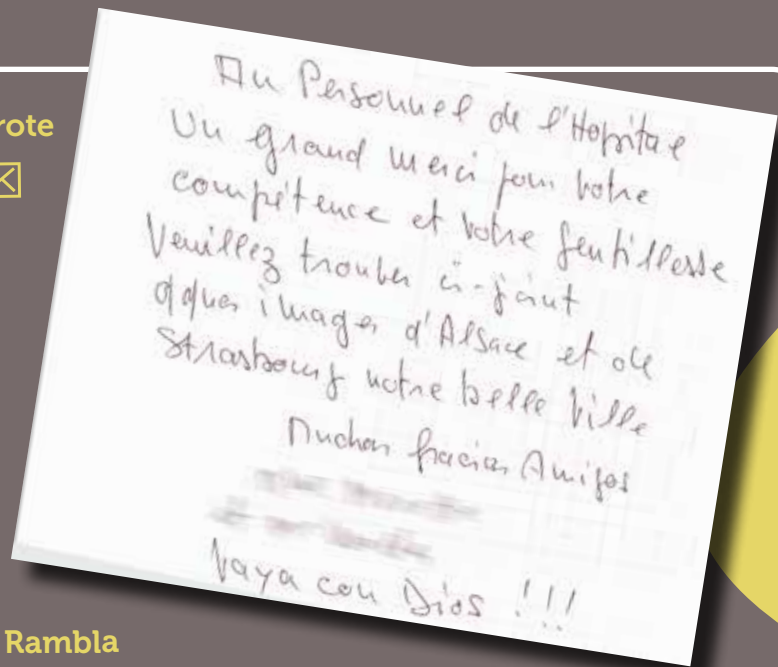 rote
Au Personnel de l'Hopital
Un grand merci pour votre
compétence et votre gentillesse
Veuillez trouver ci-joint
qques images d'Alsace et de
Strasbourg notre belle ville
Muchas gracias Amigos
Vaya con Dios !!!
Rambla